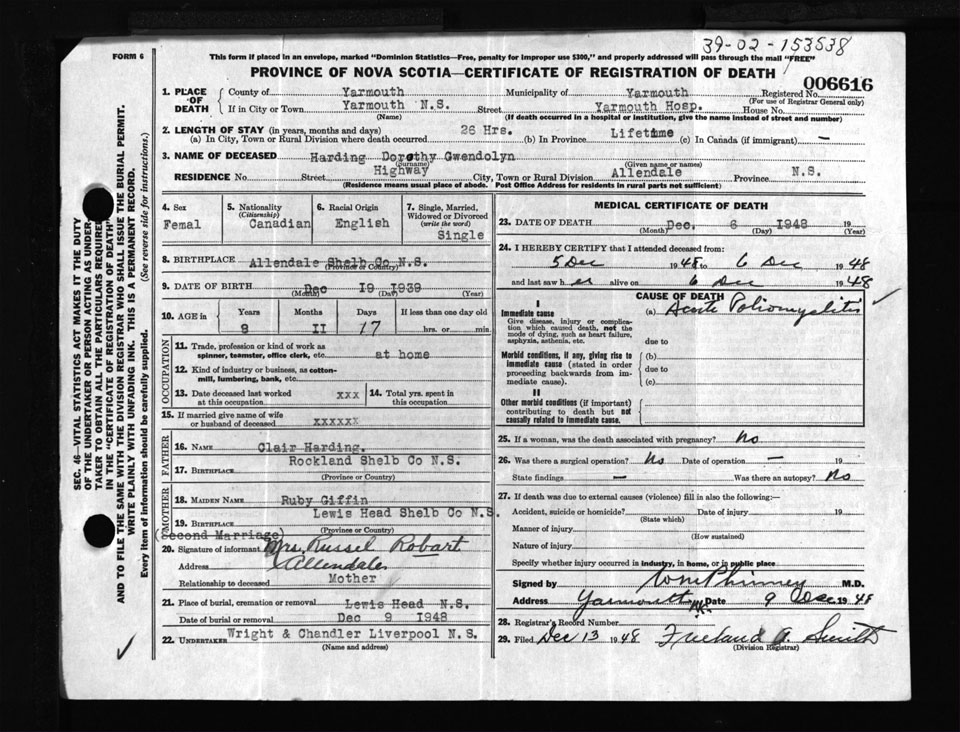 39-02-153538
FORM 6
This form if placed in an envelope, marked "Dominion Statistics—Free, penalty for improper use $300," and properly addressed will pass through the mail "FREE"
PROVINCE OF NOVA SCOTIA—CERTIFICATE OF REGISTRATION OF DEATH
006616
1. PLACE OF DEATH
County of Yarmouth Municipality of Yarmouth Registered No.
(For use of Registrar General only)
If in City or Town Yarmouth N.S. Street Yarmouth Hosp. House No.
(Name) (If death occurred in a hospital or institution, give the name instead of street and number)
2. LENGTH OF STAY (in years, months and days)
(a) In City, Town or Rural Division where death occurred 26 Hrs. (b) In Province Lifetime (c) In Canada (if immigrant) —
3. NAME OF DECEASED Harding Dorothy Gwendolyn
(Surname) (Given name or names)
RESIDENCE No. Street Highway City, Town or Rural Division Allendale Province N.S.
(Residence means usual place of abode. Post Office Address for residents in rural parts not sufficient)
4. Sex
Femal
5. Nationality
(Citizenship)
Canadian
6. Racial Origin
English
7. Single, Married, Widowed or Divorced
(write the word)
Single
8. BIRTHPLACE Allendale Shelb Co N.S.
(Province or Country)
9. DATE OF BIRTH Dec 19 1939
(Month) (Day) (Year)
10. AGE in
Years Months Days If less than one day old
8 II 17 hrs. or min.
OCCUPATION
11. Trade, profession or kind of work as spinner, teamster, office clerk, etc. at home
12. Kind of industry or business, as cotton-mill, lumbering, bank, etc.
13. Date deceased last worked at this occupation xxx
14. Total yrs. spent in this occupation
15. If married give name of wife or husband of deceased xxxxxx
FATHER
16. NAME Clair Harding.
17. BIRTHPLACE Rockland Shelb Co N.S.
(Province or Country)
MOTHER
18. MAIDEN NAME Ruby Giffin
19. BIRTHPLACE Lewis Head Shelb Co N.S.
(Province or Country)
(Second Marriage)
20. Signature of informant Mrs. Russel Robart
Address Allendale
Relationship to deceased Mother
21. Place of burial, cremation or removal Lewis Head N.S.
Date of burial or removal Dec 9 1948
22. UNDERTAKER Wright & Chandler Liverpool N.S.
(Name and address)
MEDICAL CERTIFICATE OF DEATH
23. DATE OF DEATH Dec. 6 1948 19
(Month) (Day) (Year)
24. I HEREBY CERTIFY that I attended deceased from:
5 Dec 1948 to 6 Dec 1948
and last saw her alive on 6 Dec 1948
CAUSE OF DEATH
I
Immediate cause
Give disease, injury or complication which caused death, not the mode of dying, such as heart failure, asphyxia, asthenia, etc.
(a) Acute Poliomyelitis
due to
Morbid conditions, if any, giving rise to immediate cause (stated in order proceeding backwards from immediate cause).
(b)
due to
(c)
II
Other morbid conditions (if important) contributing to death but not causally related to immediate cause.
25. If a woman, was the death associated with pregnancy? No
26. Was there a surgical operation? No Date of operation — 19
State findings — Was there an autopsy? No
27. If death was due to external causes (violence) fill in also the following:—
Accident, suicide or homicide? Date of injury 19
(State which)
Manner of injury
(How sustained)
Nature of injury
Specify whether injury occurred in industry, in home, or in public place
Signed by Wm Phinney M.D.
Address Yarmouth NS Date 9 Dec 1948
28. Registrar's Record Number
29. Filed Dec 13 1948 Freeland A. Smith
(Division Registrar)
SEC. 46—VITAL STATISTICS ACT MAKES IT THE DUTY
OF THE UNDERTAKER OR PERSON ACTING AS UNDERTAKER TO OBTAIN ALL THE PARTICULARS REQUIRED
IN THE "CERTIFICATE OF REGISTRATION OF DEATH"
AND TO FILE THE SAME WITH THE DIVISION REGISTRAR WHO SHALL ISSUE THE BURIAL PERMIT.
WRITE PLAINLY WITH UNFADING INK. THIS IS A PERMANENT RECORD.
Every item of information should be carefully supplied. (See reverse side for instructions.)